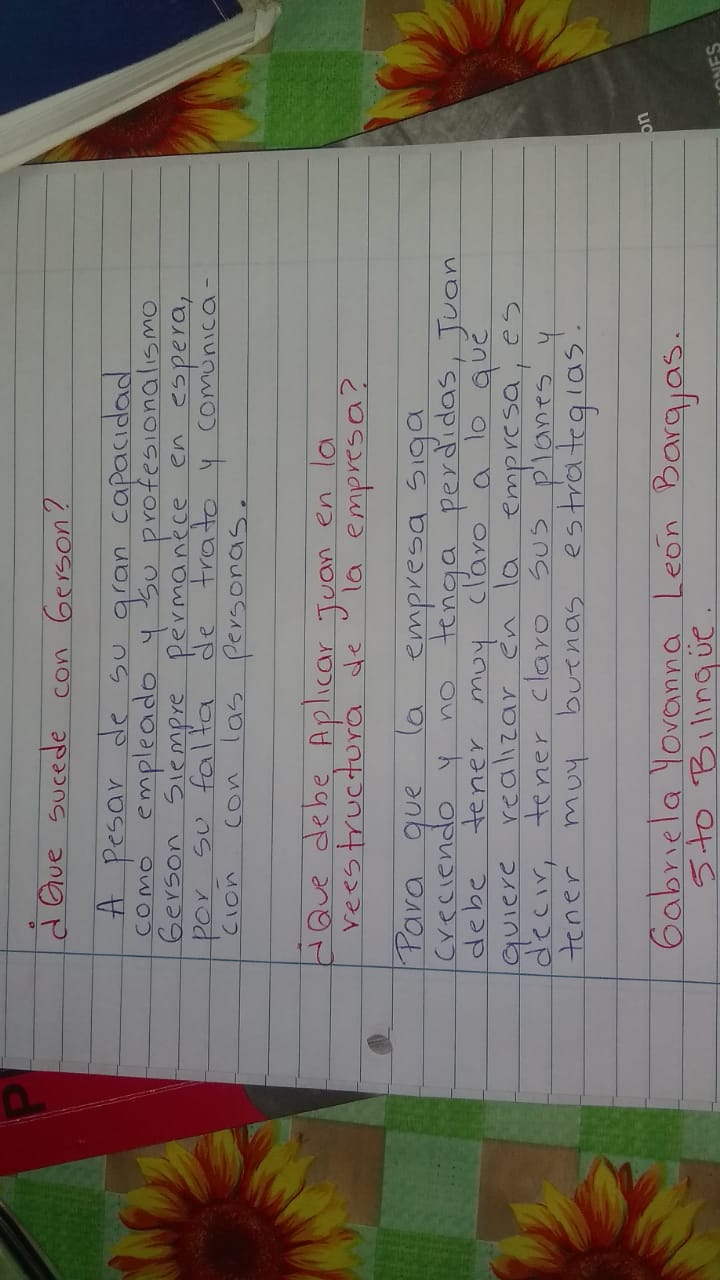 ¿Que sucede con Gerson?
A pesar de su gran capacidad
como empleado y su profesionalismo
Gerson siempre permanece en espera,
por su falta de trato y comunica-
ción con las personas.
¿Que debe Aplicar Juan en la
reestructura de la empresa?
Para que la empresa siga
creciendo y no tenga perdidas, Juan
debe tener muy claro a lo que
quiere realizar en la empresa, es
decir, tener claro sus planes y
tener muy buenas estrategias.
Gabriela Yovanna León Barajas.
5to Bilingüe.
P
on